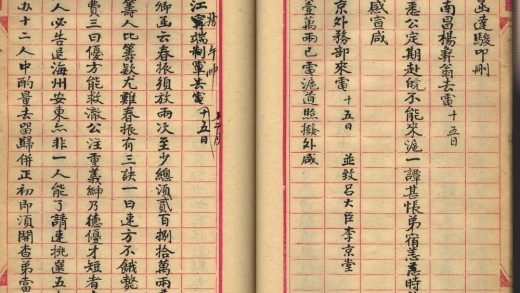 達駿叩刪
南昌楊彝翁去電 十五日
悉公定期赴皖不能來滬一譚甚悵弟宿恙時
感宣咸
京外務部來電 十五日 並致呂大臣李京堂
壹萬兩已電滬道照撥外咸
江寧端制軍去電 十五日
鄉函云春振須放兩次至少總須貳百捌拾萬兩
籌人比籌款尤難春振有三訣一曰速方不餓斃
費三曰優方能救澈公注重義紳乃德優才短者
人必告退海州安東亦非一人能了請速挑選五
十二人中酌量去留歸併正初即須開查弟當